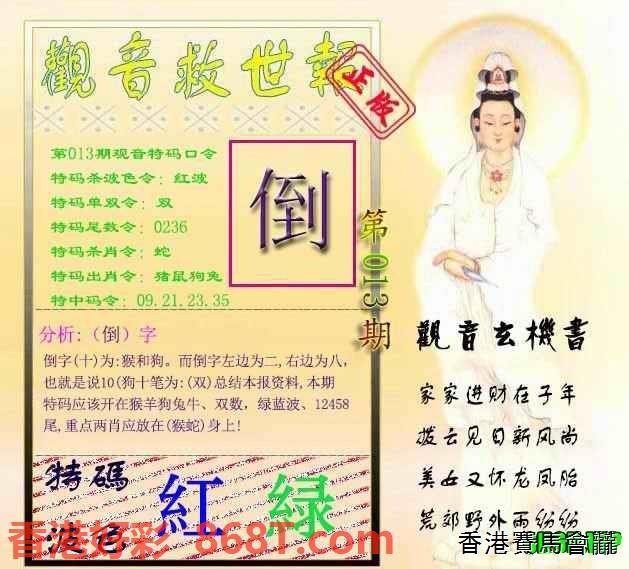 觀音救世報
正版
第013期观音特码口令
特码杀波色令：红波
特码单双令：双
特码尾数令：0236
特码杀肖令：蛇
特码出肖令：猪鼠狗兔
特中码令：09.21.23.35
倒
第013期
分析:（倒）字
倒字(十)为:猴和狗。而倒字左边为二,右边为八,
也就是说10(狗十笔为:(双)总结本报资料,本期
特码应该开在猴羊狗兔牛、双数，绿蓝波、12458
尾,重点两肖应放在(猴蛇)身上!
觀音玄機書
家家进财在子年
拨云见日新风尚
美女又怀龙凤胎
荒郊野外雨纷纷
特碼
波色
紅 綠
香港好彩 868T.com
香港賽馬會